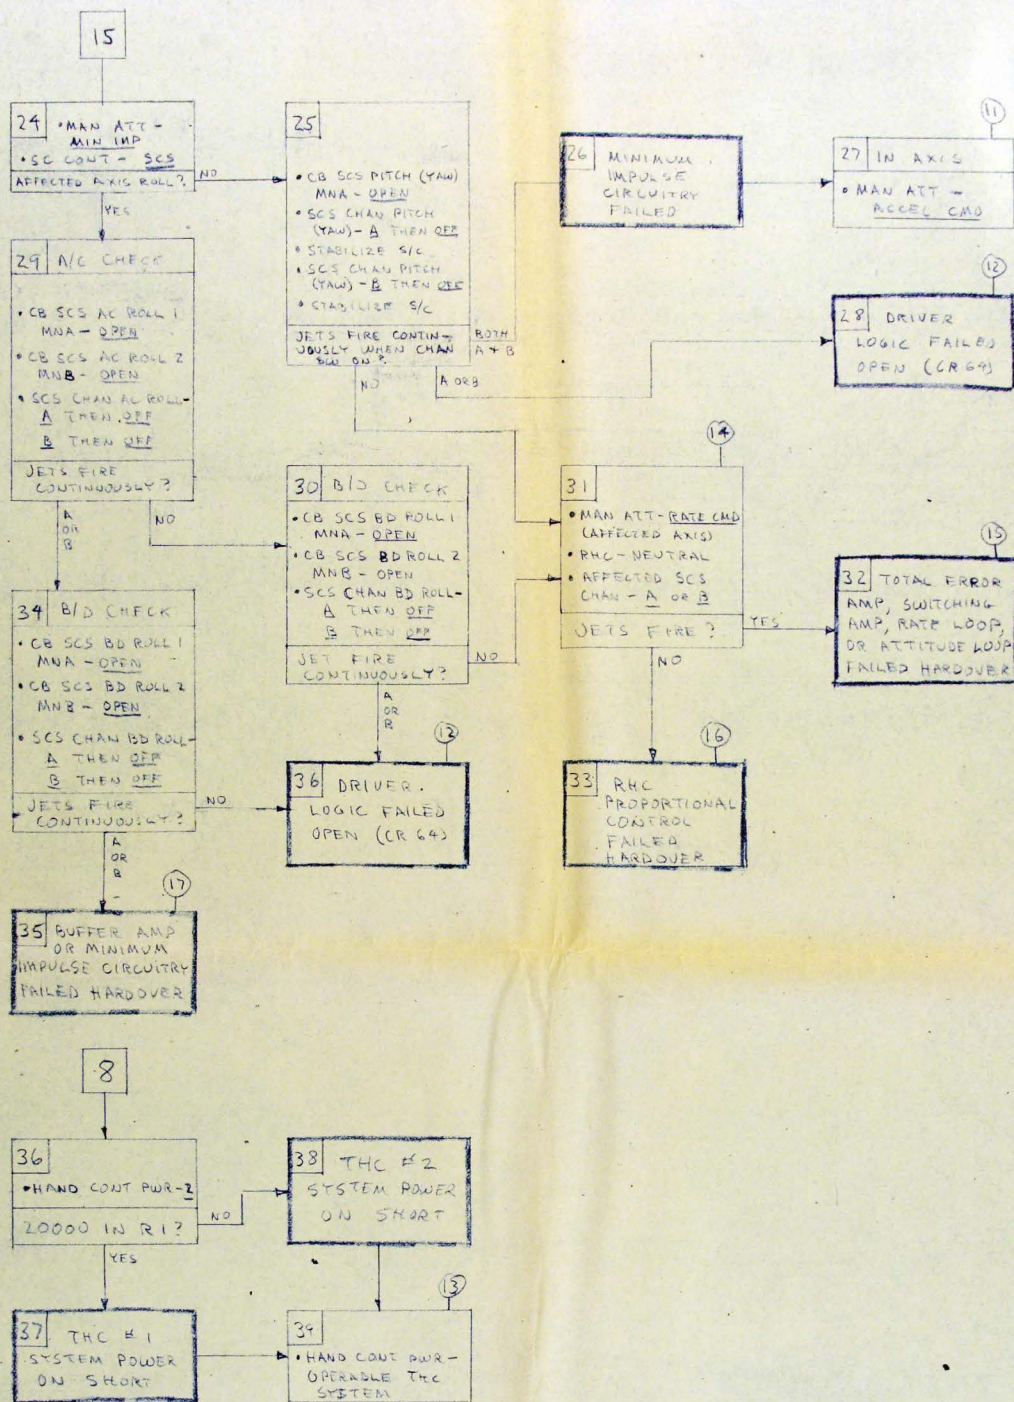 15
24 • MAN ATT -
MIN IMP
• SC CONT - SCS
AFFECTED AXIS ROLL?
NO
YES
25
• CB SCS PITCH (YAW)
MNA - OPEN
• SCS CHAN PITCH
(YAW) - A THEN OFF
• STABILIZE S/C
• SCS CHAN PITCH
(YAW) - B THEN OFF
• STABILIZE S/C
JETS FIRE CONTIN-
UOUSLY WHEN CHAN
ON?
BOTH
A + B
NO
A OR B
26 MINIMUM
IMPULSE
CIRCUITRY
FAILED
11
27 IN AXIS
• MAN ATT -
ACCEL CMD
12
28 DRIVER
LOGIC FAILED
OPEN (CR 64)
29 A/C CHECK
• CB SCS AC ROLL 1
MNA - OPEN
• CB SCS AC ROLL 2
MNB - OPEN
• SCS CHAN AC ROLL -
A THEN OFF
B THEN OFF
JETS FIRE
CONTINUOUSLY?
A
OR
B
NO
30 B/D CHECK
• CB SCS BD ROLL 1
MNA - OPEN
• CB SCS BD ROLL 2
MNB - OPEN
• SCS CHAN BD ROLL -
A THEN OFF
B THEN OFF
JET FIRE
CONTINUOUSLY?
NO
A
OR
B
14
31
• MAN ATT - RATE CMD
(AFFECTED AXIS)
• RHC - NEUTRAL
• AFFECTED SCS
CHAN - A OR B
JETS FIRE?
YES
NO
15
32 TOTAL ERROR
AMP, SWITCHING
AMP, RATE LOOP,
OR ATTITUDE LOOP
FAILED HARDOVER
34 B/D CHECK
• CB SCS BD ROLL 1
MNA - OPEN
• CB SCS BD ROLL 2
MNB - OPEN
• SCS CHAN BD ROLL -
A THEN OFF
B THEN OFF
JETS FIRE
CONTINUOUSLY?
NO
A
OR
B
12
36 DRIVER
LOGIC FAILED
OPEN (CR 64)
16
33 RHC
PROPORTIONAL
CONTROL
FAILED
HARDOVER
17
35 BUFFER AMP
OR MINIMUM
IMPULSE CIRCUITRY
FAILED HARDOVER
8
36
• HAND CONT PWR - 2
20000 IN R1?
NO
YES
38 THC #2
SYSTEM POWER
ON SHORT
37 THC #1
SYSTEM POWER
ON SHORT
13
39
• HAND CONT PWR -
OPERABLE THC
SYSTEM